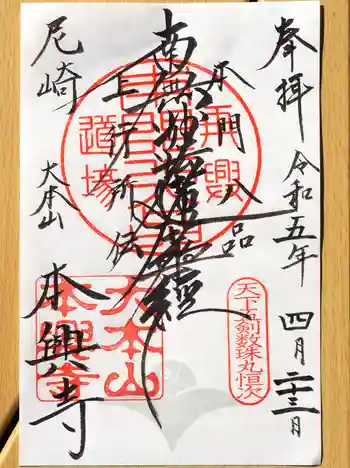 奉拝
令和五年
四月二十三日
本門八品
南無妙法蓮華経
上行所伝
尼崎
大本山
本興寺
天下五剣数珠丸恒次
大本山
本興寺
道場